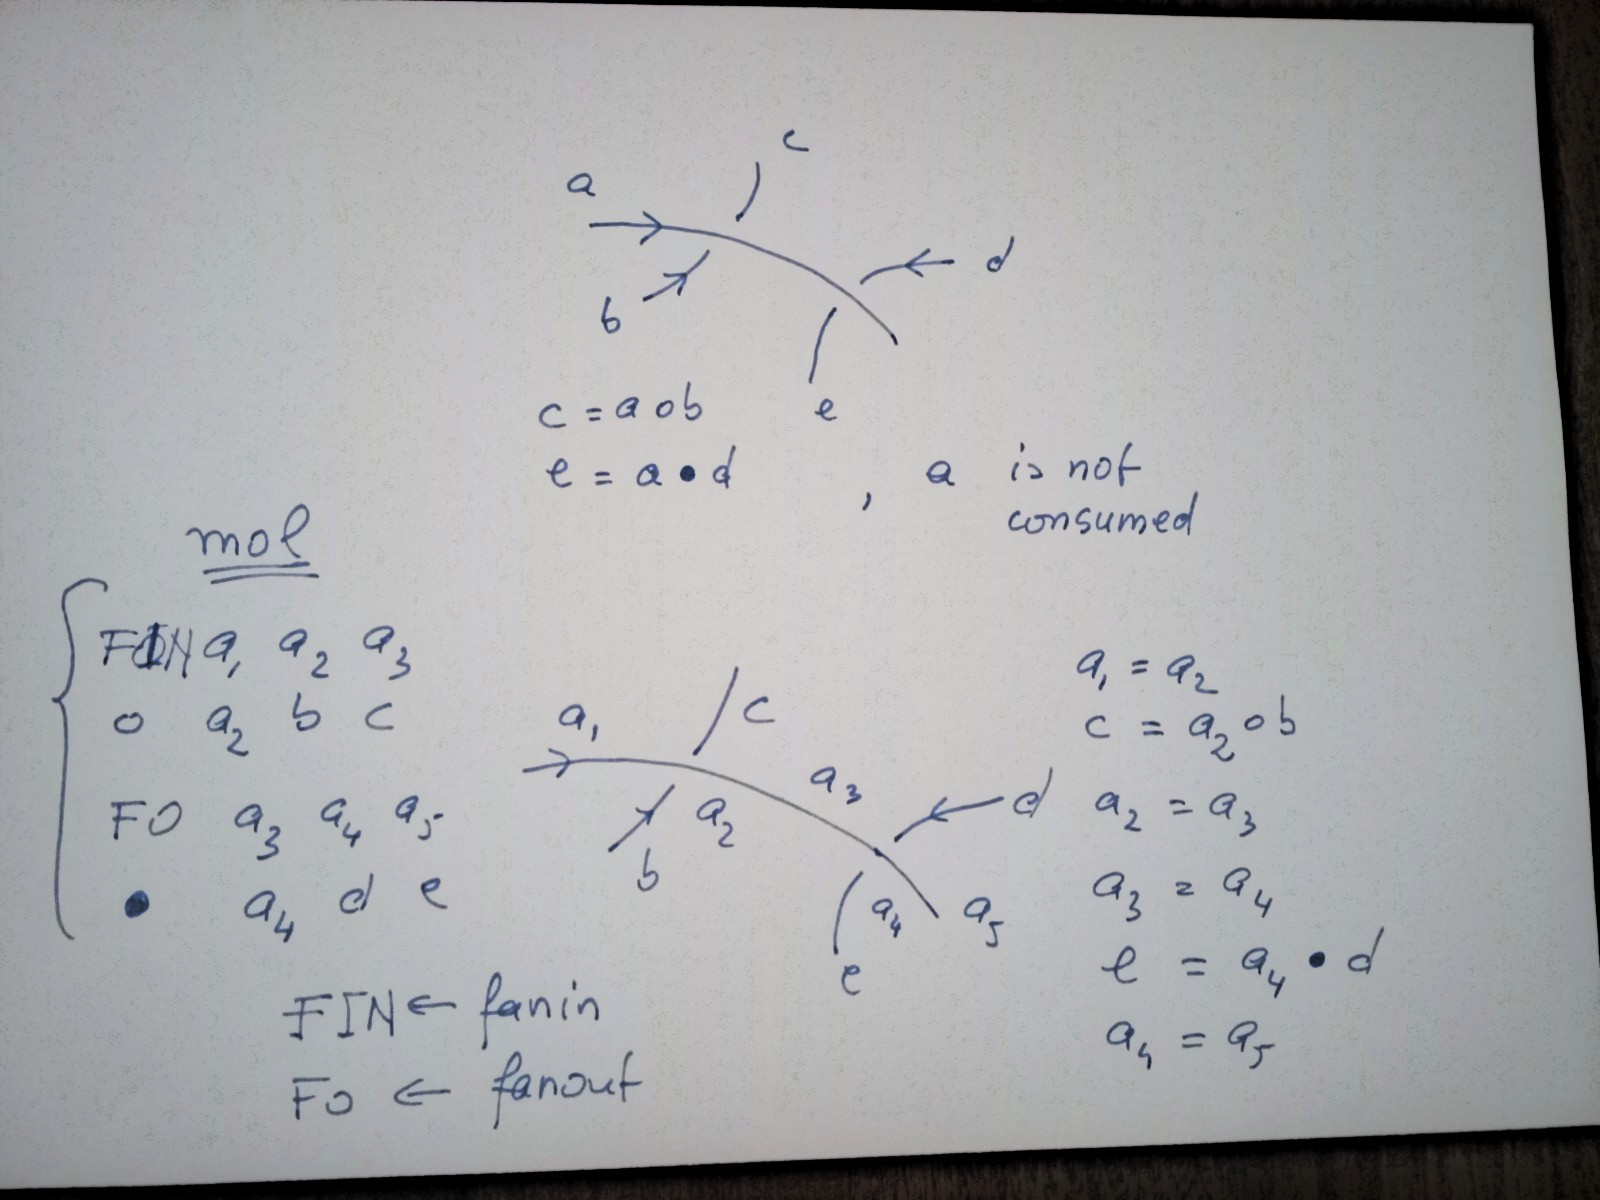 c
a
d
b
e
c = a o b
e = a • d , a is not
consumed
mol
FIN a₁ a₂ a₃
o a₂ b c
FO a₃ a₄ a₅
• a₄ d e
a₁ c
a₃ d
b a₂
a₄ a₅
e
a₁ = a₂
c = a₂ o b
a₂ = a₃
a₃ = a₄
e = a₄ • d
a₄ = a₅
FIN ← fanin
FO ← fanout